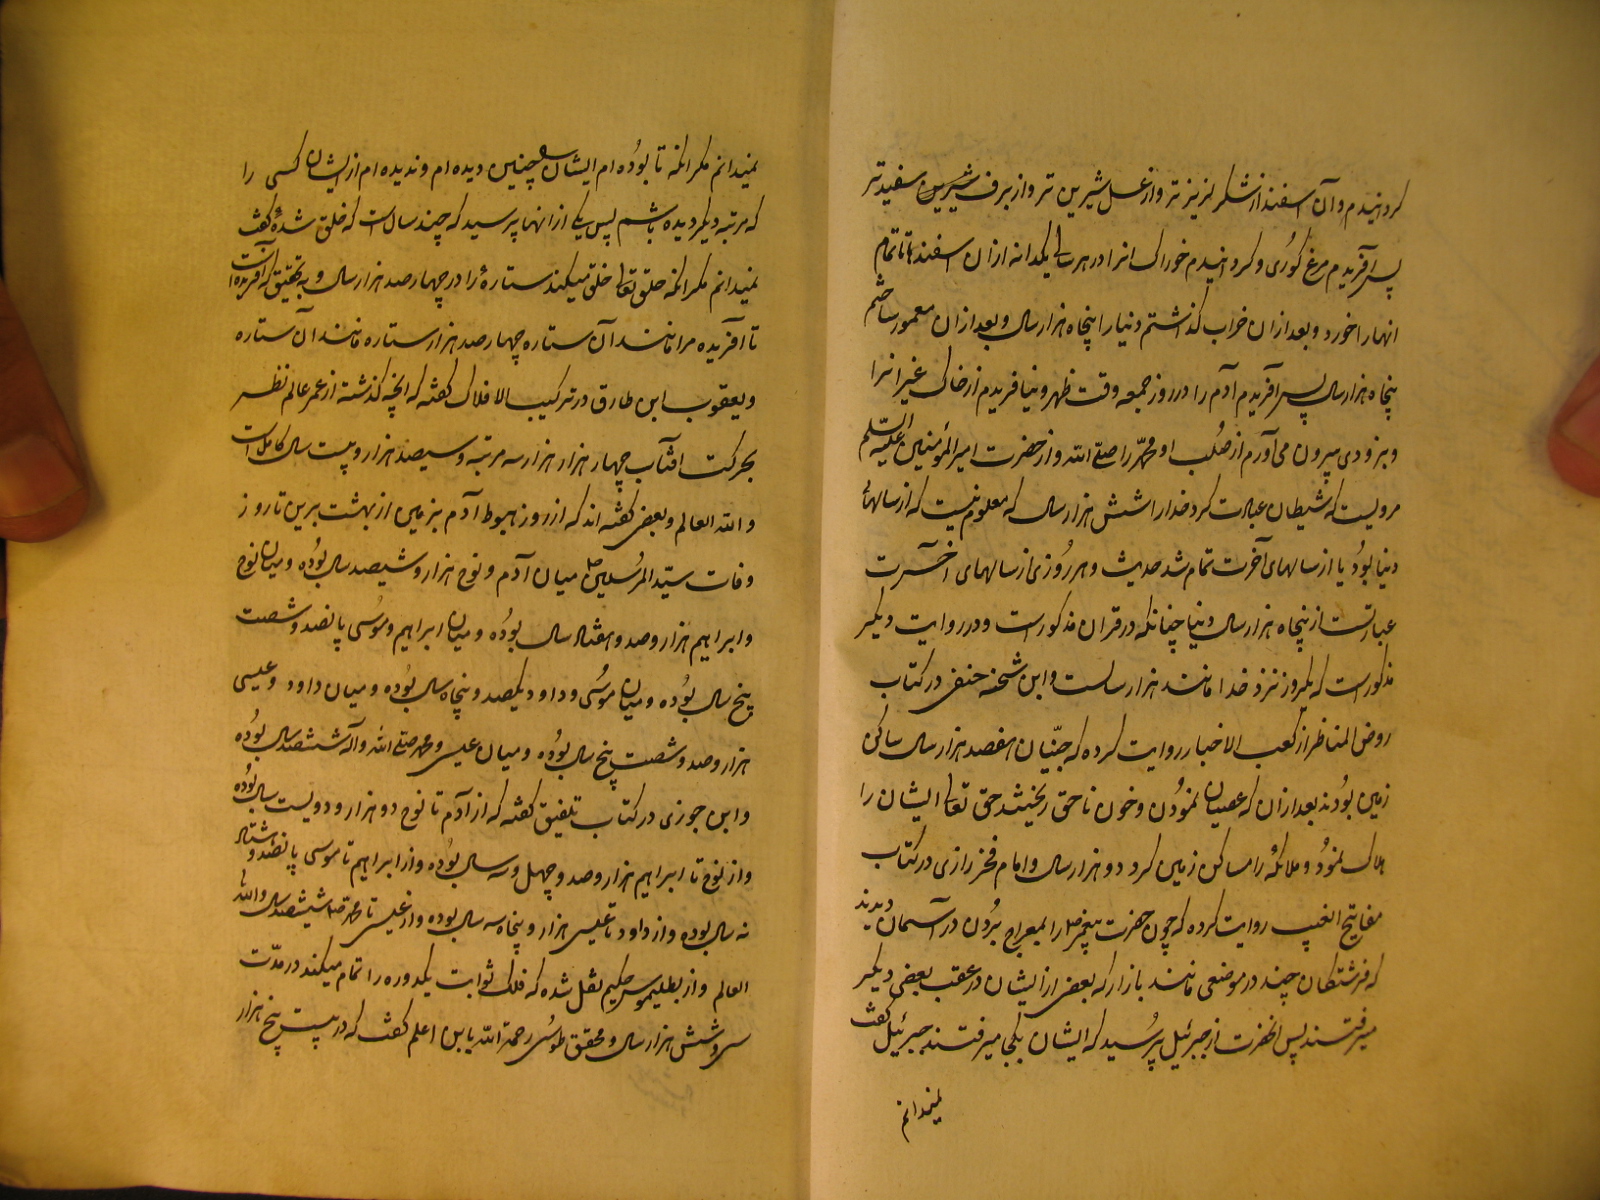 کردانیدم و آن اسفند از شکر لزیز تر و از عسل شیرین تر و از برف شیرین سفید تر
پس آفریدم مرغ کوری و کردانیدم خوراک انرا در هر سالی یکدانه از ان اسفندها تا تمام
انهارا خورد و بعد از ان خراب کذاشتم دنیا را پنجاه هزار سال و بعد از ان معمور ساختم
پنجاه هزار سال پس آفریدم آدم را در روز جمعه وقت ظهر و نیافریدم از خاک غیر انرا
و بزودی بیرون می آورم از صلب او محمّد را صلّے اللّه و از حضرت امیر المؤمنین علیه السّلم
مرویست که شیطان عبادت کرد خدا را شش هزار سال که معلوم نیست که از سالهای
دنیا بوُد یا از سالهای آخرت تمام شد حدیث و هر رُوزی از سالهای اخرت
عبارتست از پنجاه هزار سال دنیا چنانکه در قران مذکور است و در روایت دیکر
مذکور است که یکروز نزد خدا مانند هزار سالست و ابن شحنه حنفی در کتاب
روض المناظر از کعب الاخبار روایت کرده که جنّیان هفصد هزار سال ساکن
زمین بوُدند بعد از ان که عصیان نموُدن و خون ناحق ریختند حق تعالی ایشان را
هلاک نموُد و ملائکهُ را ساکن زمین کرد دو هزار سال و امام فخر رازی در کتاب
مفاتیح الغیب روایت کرده که چون حضرت پیغمبر صلم را بمعراج برُدن در آسمان دیدند
که فرشتکان چند در موضعی مانند بازار که بعضی از ایشان در عقب بعضی دیکر
میرفتند پس انحضرت از جبرئیل پرُسید که ایشان بکجا میرفتند جبرئیل کفت
نمیدانم
نمیدانم مکر انکه تا بوُده ام ایشان چنین دیده ام و ندیده ام از ایشان کسی را
که مرتبه دیکر دیده باشم پس یکی از انها پرسید که چند سال است که خلق شدهٔ کفت
نمیدانم مکر انکه حق تعالی خلق میکند ستارهٔ را در چهار صد هزار سال و بتحقیق که آفریده است
تا آفریده مرا مانند آن ستاره چهار صد هزار ستاره مانند ان ستاره
و یعقوب ابن طارق در ترکیب الافلاک کفته که انچه کذشته از عمر عالم نظر
بحرکت افتاب چهار هزار هزار سه مرتبه و سیصد هزار و بیست سال کامل است
و اللّه العالم و بعضی کفته اند که از روز هبوط آدم بزمین از بهشت برین تا روز
وفات سیّد المرسُلین صلم میان آدم و نوح هزار و شیصد سال بوُده و میان نوح
و ابراهیم هزار و صد و هفتاد سال بوُده و میان ابراهیم و موُسی پانصد و شصت
پنج سال بوُده و میان موُسی و داود یکصد و پنجاه سال بوُده و میان داود و عیسی
هزار و صد و شصت پنج سال بوُده و میان عیسی و محمد صلے اللّه و آله ششصد سال بوُده
و ابن جوزی در کتاب تلفیق کفته که از آدم تا نوح دو هزار و دویست سال بوُده
و از نوح تا ابراهیم هزار و صد و چهل و سه سال بوُده و از ابراهیم تا موسی پانصد و هشتاد
نه سال بوده و از داود تا عیسی هزار و پنجاه سه سال بوده و از عیسی تا محمد صلم ششصد سال و اللّه
العالم و از بطلیموس حکیم نقل شده که فلک ثوابت یکدوره را تمام میکند در مدّت
سی و شش هزار سال و محقق طوسُی رحمة اللّه باین اعلم کفت که در بیست پنج هزار